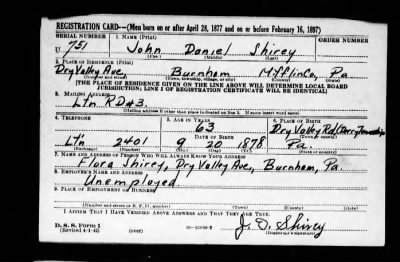 REGISTRATION CARD—(Men born on or after April 28, 1877 and on or before February 16, 1897)
SERIAL NUMBER 1. NAME (Print) ORDER NUMBER
U 751 John Daniel Shirey
(First) (Middle) (Last)
2. PLACE OF RESIDENCE (Print)
Dry Valley Ave, Burnham Mifflin Co, Pa
(Number and street) (Town, township, village, or city) (County) (State)
[THE PLACE OF RESIDENCE GIVEN ON THE LINE ABOVE WILL DETERMINE LOCAL BOARD
JURISDICTION; LINE 2 OF REGISTRATION CERTIFICATE WILL BE IDENTICAL]
3. MAILING ADDRESS
Ltn RD#3
[Mailing address if other than place indicated on line 2. If same insert word same]
4. TELEPHONE 5. AGE IN YEARS 6. PLACE OF BIRTH
63 Dry Valley Rd (Derry Township
DATE OF BIRTH
Ltn 2401 9 20 1878 Pa.
(Exchange) (Number) (Mo.) (Day) (Yr.) (State or country)
7. NAME AND ADDRESS OF PERSON WHO WILL ALWAYS KNOW YOUR ADDRESS
Flora Shirey, Dry Valley Ave, Burnham, Pa.
8. EMPLOYER'S NAME AND ADDRESS
Unemployed.
9. PLACE OF EMPLOYMENT OR BUSINESS
(Number and street or R. F. D. number) (Town) (County) (State)
I AFFIRM THAT I HAVE VERIFIED ABOVE ANSWERS AND THAT THEY ARE TRUE.
D. S. S. Form 1
(Revised 4-1-42) (over) J. D. Shirey
(Registrant's signature)